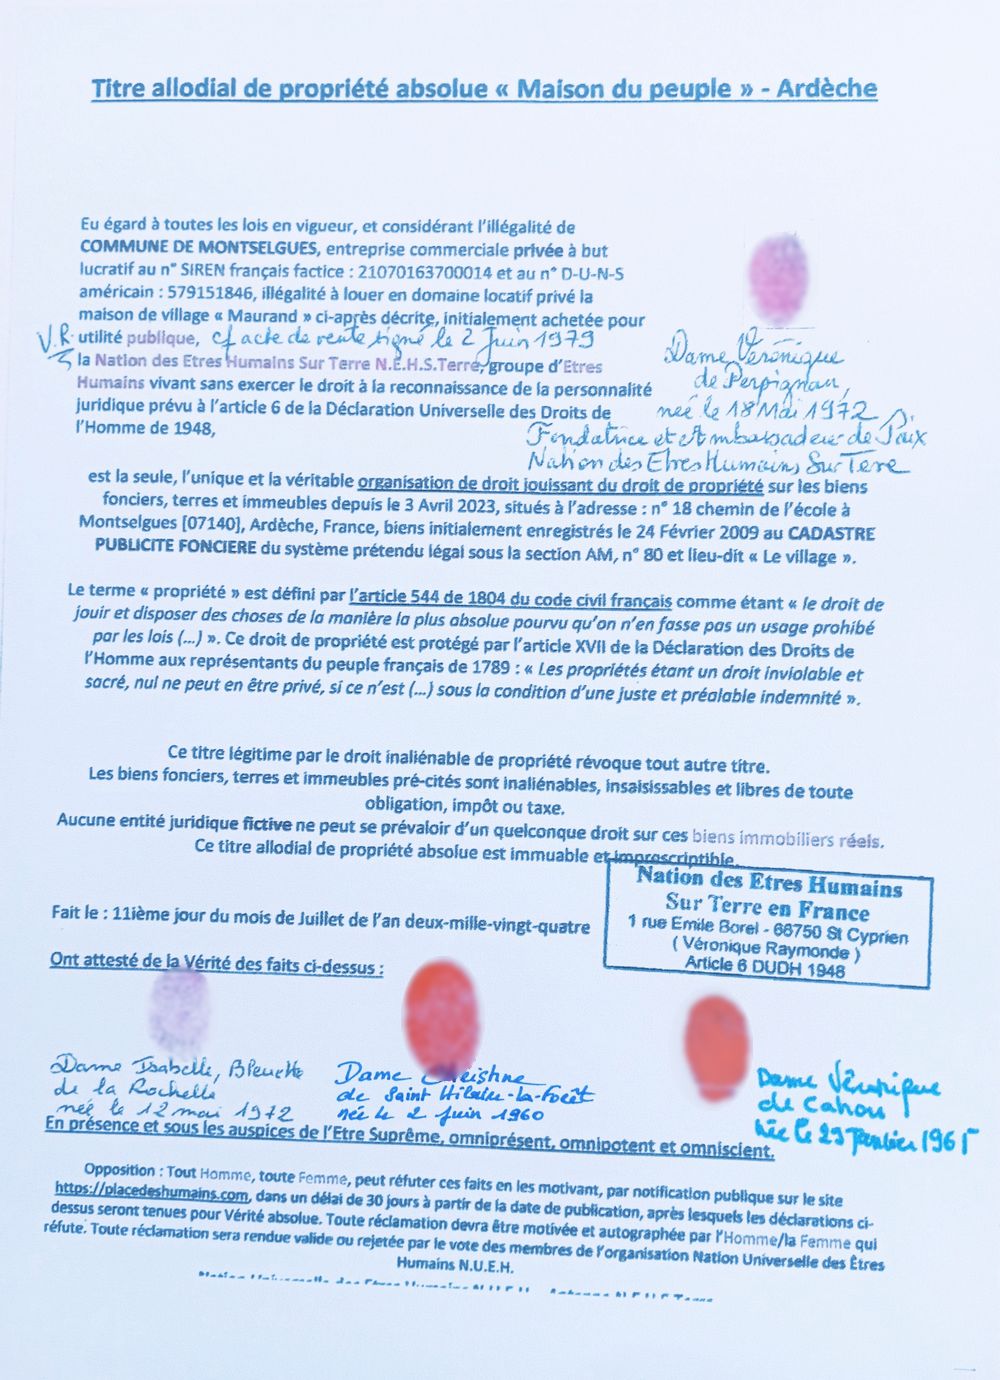 Titre allodial de propriété absolue « Maison du peuple » - Ardèche
Eu égard à toutes les lois en vigueur, et considérant l'illégalité de
COMMUNE DE MONTSELGUES, entreprise commerciale privée à but
lucratif au n° SIREN français factice : 21070163700014 et au n° D-U-N-S
américain : 579151846, illégalité à louer en domaine locatif privé la
maison de village « Maurand » ci-après décrite, initialement achetée pour
V.R. utilité publique, cf acte de vente signé le 2 Juin 1979
la Nation des Etres Humains Sur Terre N.E.H.S.Terre, groupe d'Etres
Humains vivant sans exercer le droit à la reconnaissance de la personnalité
juridique prévu à l'article 6 de la Déclaration Universelle des Droits de
l'Homme de 1948,
Dame Véronique
de Perpignan,
née le 18 Mai 1972
Fondatrice et Ambassadeur de Paix
Nation des Etres Humains Sur Terre
est la seule, l'unique et la véritable organisation de droit jouissant du droit de propriété sur les biens
fonciers, terres et immeubles depuis le 3 Avril 2023, situés à l'adresse : n° 18 chemin de l'école à
Montselgues [07140], Ardèche, France, biens initialement enregistrés le 24 Février 2009 au CADASTRE
PUBLICITE FONCIERE du système prétendu légal sous la section AM, n° 80 et lieu-dit « Le village ».
Le terme « propriété » est défini par l'article 544 de 1804 du code civil français comme étant « le droit de
jouir et disposer des choses de la manière la plus absolue pourvu qu'on n'en fasse pas un usage prohibé
par les lois (...) ». Ce droit de propriété est protégé par l'article XVII de la Déclaration des Droits de
l'Homme aux représentants du peuple français de 1789 : « Les propriétés étant un droit inviolable et
sacré, nul ne peut en être privé, si ce n'est (...) sous la condition d'une juste et préalable indemnité ».
Ce titre légitime par le droit inaliénable de propriété révoque tout autre titre.
Les biens fonciers, terres et immeubles pré-cités sont inaliénables, insaisissables et libres de toute
obligation, impôt ou taxe.
Aucune entité juridique fictive ne peut se prévaloir d'un quelconque droit sur ces biens immobiliers réels.
Ce titre allodial de propriété absolue est immuable et imprescriptible.
Nation des Etres Humains
Sur Terre en France
1 rue Emile Borel - 66750 St Cyprien
( Véronique Raymonde )
Article 6 DUDH 1948
Fait le : 11ième jour du mois de Juillet de l'an deux-mille-vingt-quatre
Ont attesté de la Vérité des faits ci-dessus :
Dame Isabelle, Bleuette
de la Rochelle
née le 12 mai 1972
Dame
de Saint Hilaire-la-Forêt
née le 2 juin 1960
Dame Véronique
de Cahors
née le 29 Janvier 1965
En présence et sous les auspices de l'Etre Suprême, omniprésent, omnipotent et omniscient.
Opposition : Tout Homme, toute Femme, peut réfuter ces faits en les motivant, par notification publique sur le site
https://placedeshumains.com, dans un délai de 30 jours à partir de la date de publication, après lesquels les déclarations ci-
dessus seront tenues pour Vérité absolue. Toute réclamation devra être motivée et autographée par l'Homme/la Femme qui
réfute. Toute réclamation sera rendue valide ou rejetée par le vote des membres de l'organisation Nation Universelle des Êtres
Humains N.U.E.H.